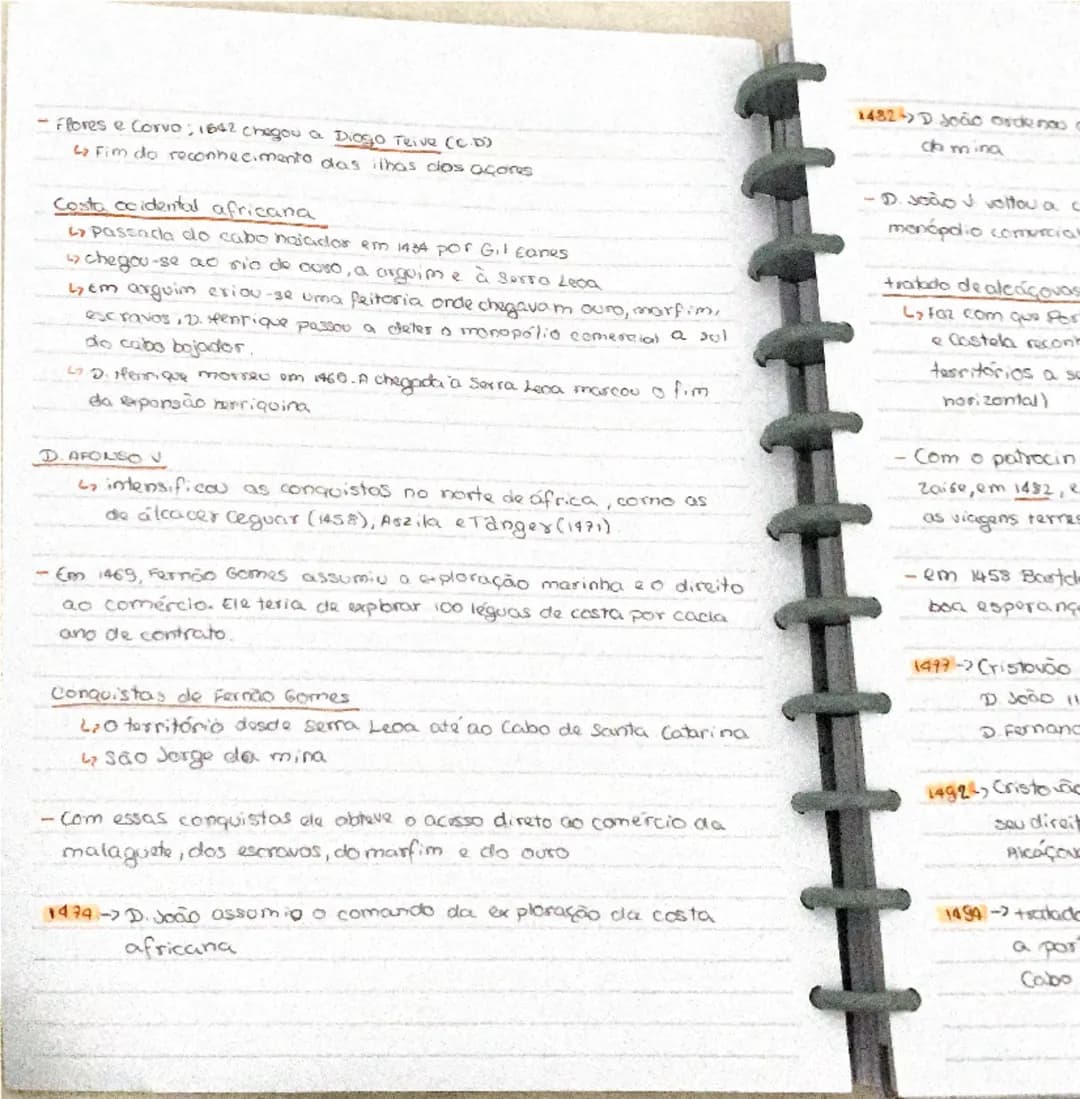 - Flores e Corvo; 1642 chegou a Diogo Teive (C.D)
↳ Fim do reconhecimento das ilhas dos açores
Costa ocidental africana
↳ passada do cabo nojador em 1434 por Gil Eanes
↳ chegou-se ao rio de ouro, a arguim e à Serra Leoa
↳ em arguim criou-se uma feitoria onde chegavam ouro, marfim,
escravos, D. Henrique passou a deter o monopólio comercial a sul
do cabo bojador.
↳ D. Henrique morreu em 1460. A chegada à Serra Leoa marcou o fim
da expansão henriquina
D. AFONSO V
↳ intensificou as conquistas no norte de áfrica, como as
de álcacer ceguar (1458), Arzila e Tânger (1471)
- Em 1469, Fernão Gomes assumiu a exploração marinha e o direito
ao comércio. Ele teria de explorar 100 léguas de costa por cada
ano de contrato.
Conquistas de Fernão Gomes
↳ O território desde Serra Leoa até ao Cabo de Santa Catarina
↳ São Jorge da mina
- Com essas conquistas ele obteve o acesso direto ao comércio da
malagueta, dos escravos, do marfim e do ouro
1474 -> D. João assumio o comando da exploração da costa
africana
1482 -> D. João ordenou
da mina
- D. João voltou a
monópolio comercial
tratado de alcáçovas
↳ Faz com que Por
e Castela reconh
territórios a su
horizontal)
- Com o patrocin
Zaire, em 1482, e
as viagens terres
- em 1458 Bartol
boa esperanç
1477 -> Cristovão
D. João II
D. Fernand
1492 -> Cristovão
seu direit
Alcáçov
1494 -> tratado
a por
Cabo